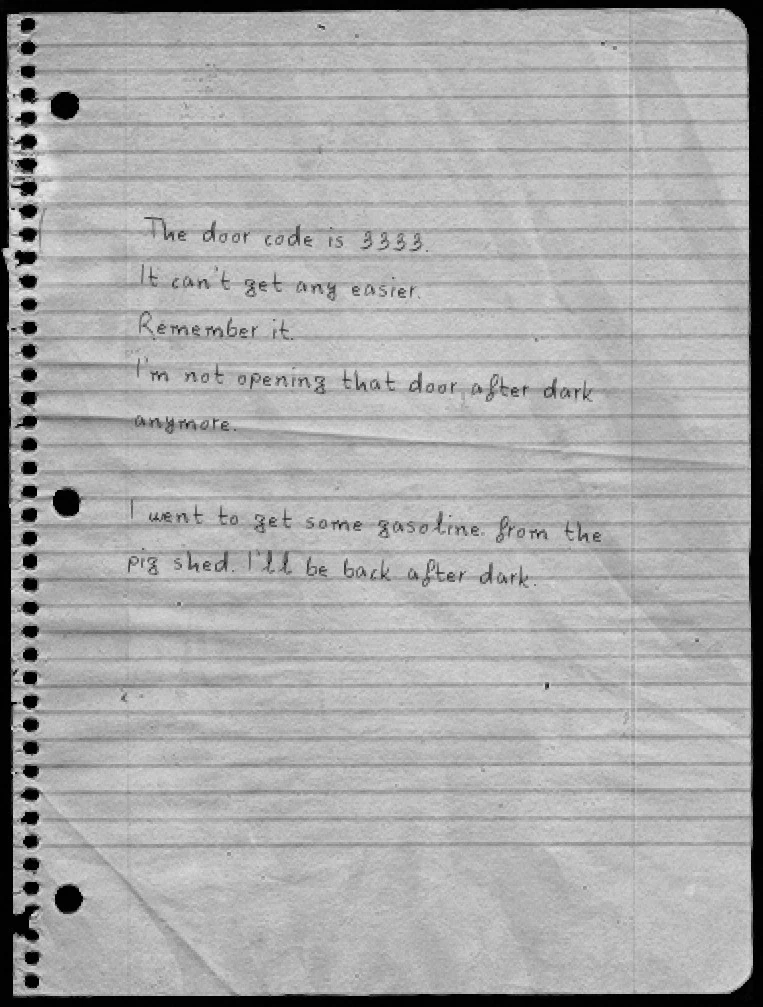 The door code is 3333.
It can't get any easier.
Remember it.
I'm not opening that door after dark
anymore.
I went to get some gasoline from the
pig shed. I'll be back after dark.